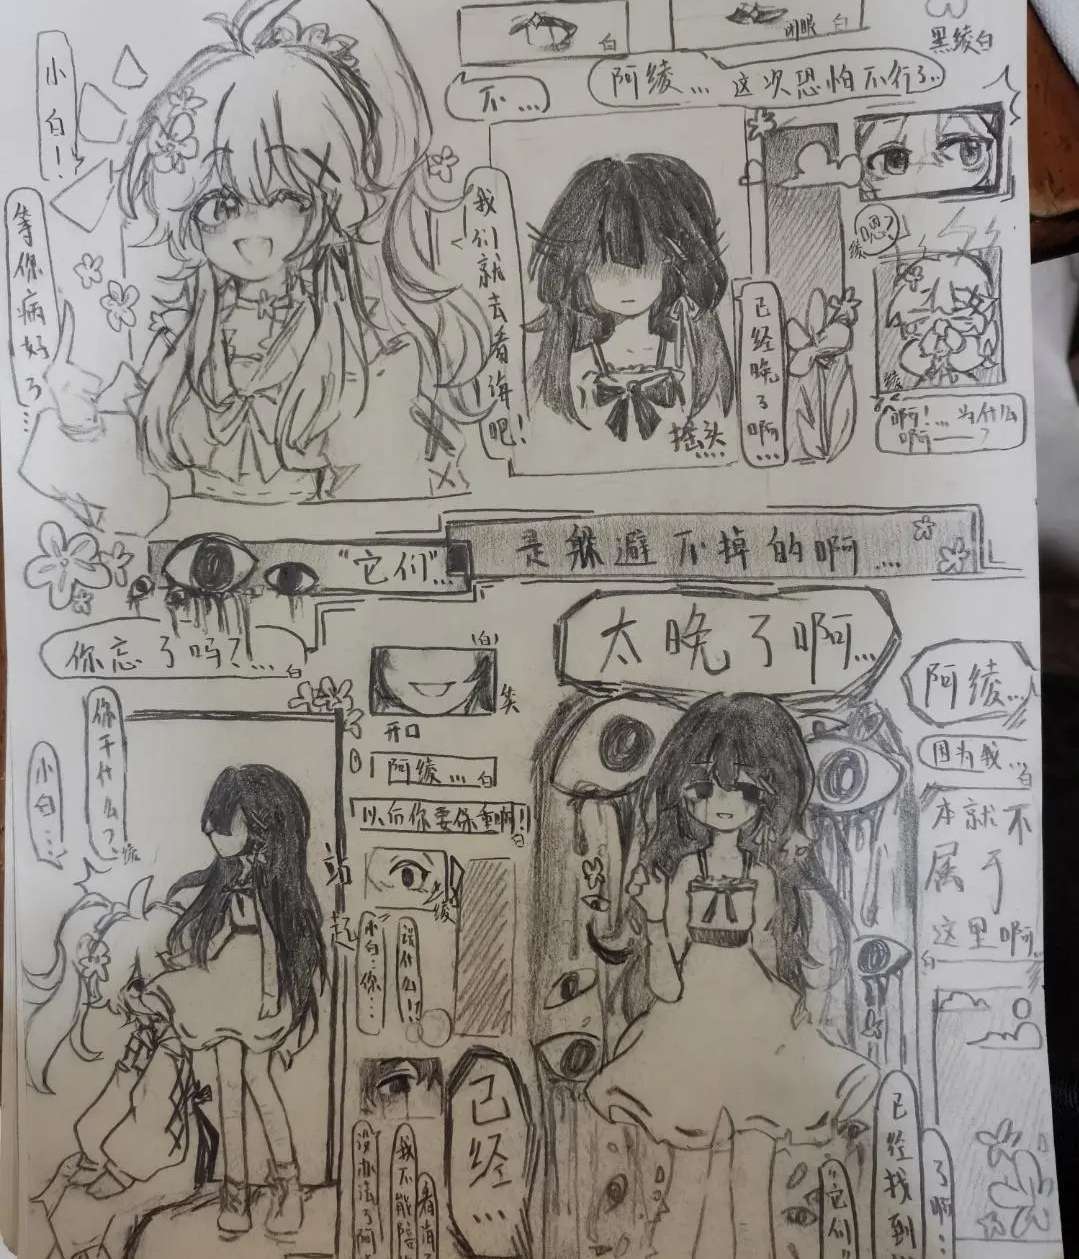 小白！
等你病好了…
我们就去看海吧！
白
闭眼 白
黑绫白
不…
阿绫…这次恐怕不行了
摇头…
已经晚了啊…
嗯？
绫
绫
啊！…为什么
啊——？
“它们”…
是躲避不掉的啊…
你忘了吗？…
白
你干什么？
绫
小白…
站起
(白)
笑
开口
阿绫… 白
以后你要保重啊！
白
绫
小白…你…
说什么！？
已经…
没办法了啊
我不能陪
看海
太晚了啊…
阿绫…
因为我…
白
本就不
属于
这里啊…
白
“它们”
已经找到
了啊